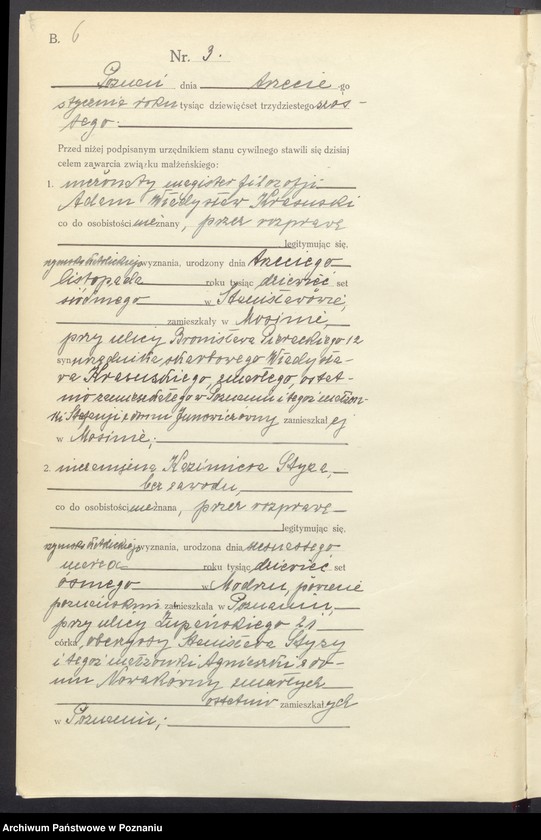 B. 6
Nr. 3.
Poznań dnia trzeciego
stycznia roku tysiąc dziewięćset trzydziestego szós-
tego.
Przed niżej podpisanym urzędnikiem stanu cywilnego stawili się dzisiaj
celem zawarcia związku małżeńskiego:
1. nieżonaty magister filozofji
Adam Władysław Krasuski
co do osobistości nieznany, przez rozprawę
legitymując się.
rzymsko katolickiego wyznania, urodzony dnia trzeciego
listopada roku tysiąc dziewięć set
siódmego w Stanisławowie,
zamieszkały w Mosinie,
przy ulicy Bronisława Pierackiego 12
syn urzędnika skarbowego Władysła-
wa Krasuskiego, zmarłego, ostat-
nio zamieszkałego w Poznaniu i tegoż małżon-
ki Stefanji z domu Junowiczówny zamieszkałej
w Mosinie;
2. niezamężna Kazimiera Styza,
bez zawodu,
co do osobistości nieznana, przez rozprawę
legitymując się.
rzymsko katolickiego wyznania, urodzona dnia szesnastego
marca roku tysiąc dziewięć set
ósmego w Modrzu, powiecie
poznańskim zamieszkała w Poznaniu,
przy ulicy Łupańskiego 21
córka, oberżysty Stanisława Styzy
i tegoż małżonki Agnieszki z do-
mu Nowakówny zmarłych
ostatnio zamieszkałych
w Poznaniu;
Archiwum Państwowe w Poznaniu